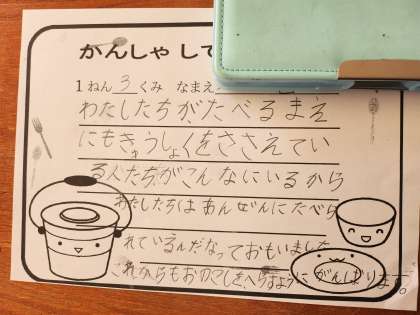 かんしゃ して
1ねん 3 くみ なまえ
わたしたちがたべるまえ
にもきゅうしょくをささえてい
る人たちがこんなにいるから
わたしたちは あんぜんにたべら
れているんだなっておもいました
これからもおのこしをへらすように がんばります。